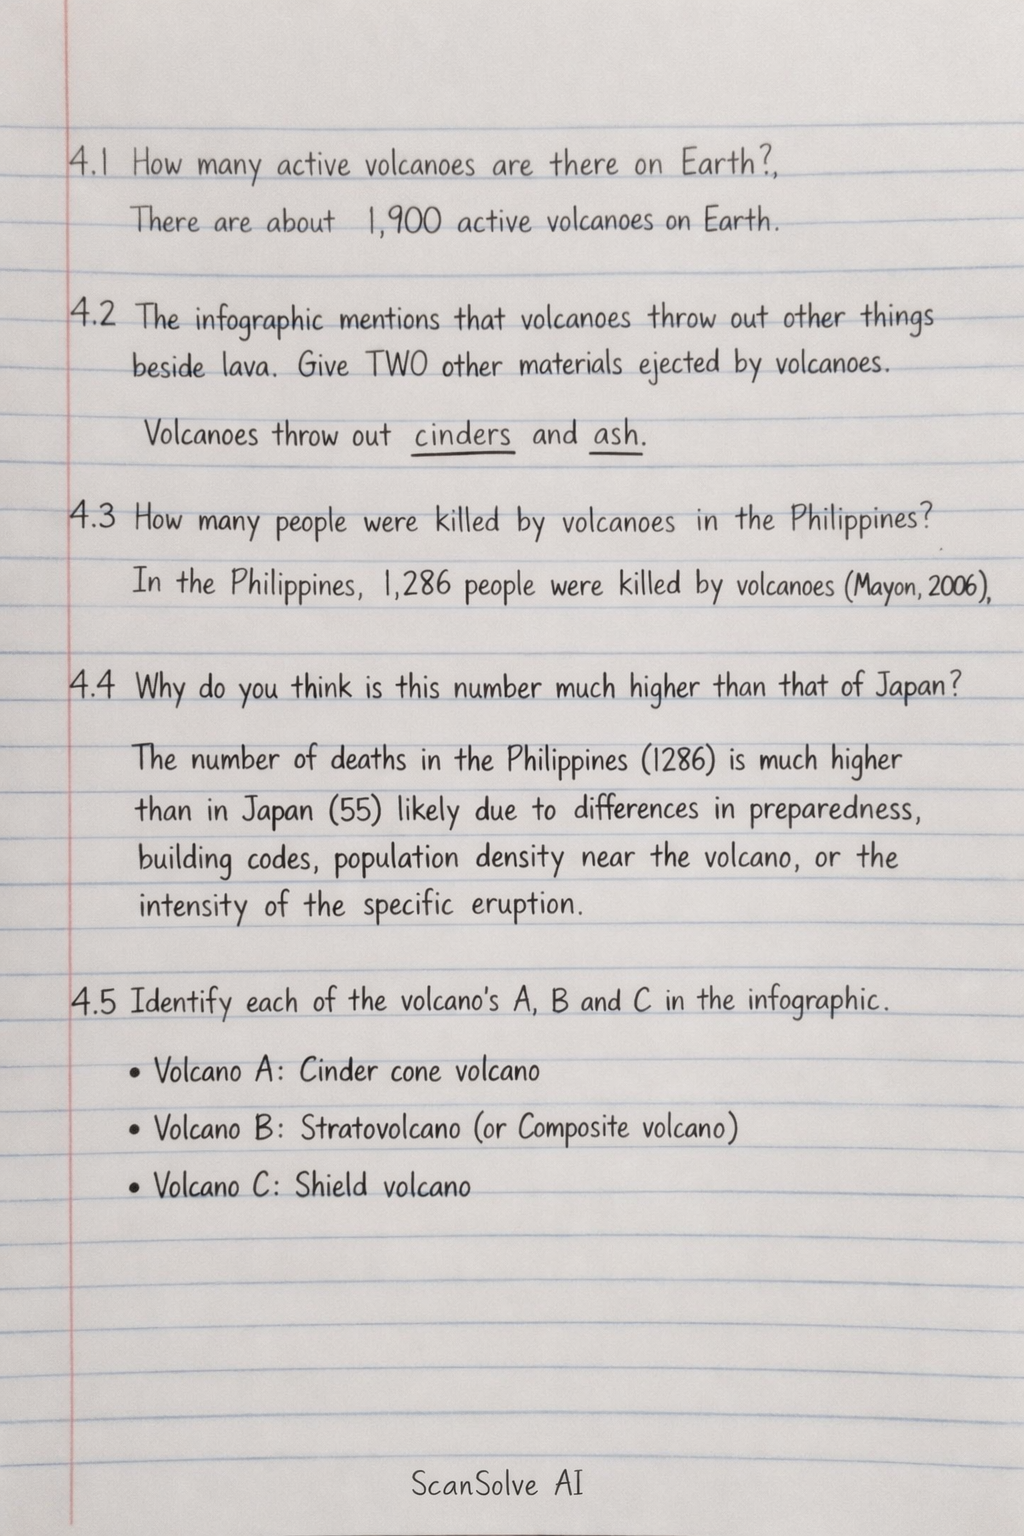 4.1 How many active volcanoes are there on Earth?,
There are about 1,900 active volcanoes on Earth.
4.2 The infographic mentions that volcanoes throw out other things
beside lava. Give TWO other materials ejected by volcanoes.
Volcanoes throw out cinders and ash.
4.3 How many people were killed by volcanoes in the Philippines?
In the Philippines, 1,286 people were killed by volcanoes (Mayon, 2006),
4.4 Why do you think is this number much higher than that of Japan?
The number of deaths in the Philippines (1286) is much higher
than in Japan (55) likely due to differences in preparedness,
building codes, population density near the volcano, or the
intensity of the specific eruption.
4.5 Identify each of the volcano's A, B and C in the infographic.
• Volcano A: Cinder cone volcano
• Volcano B: Stratovolcano (or Composite volcano)
• Volcano C: Shield volcano
ScanSolve AI